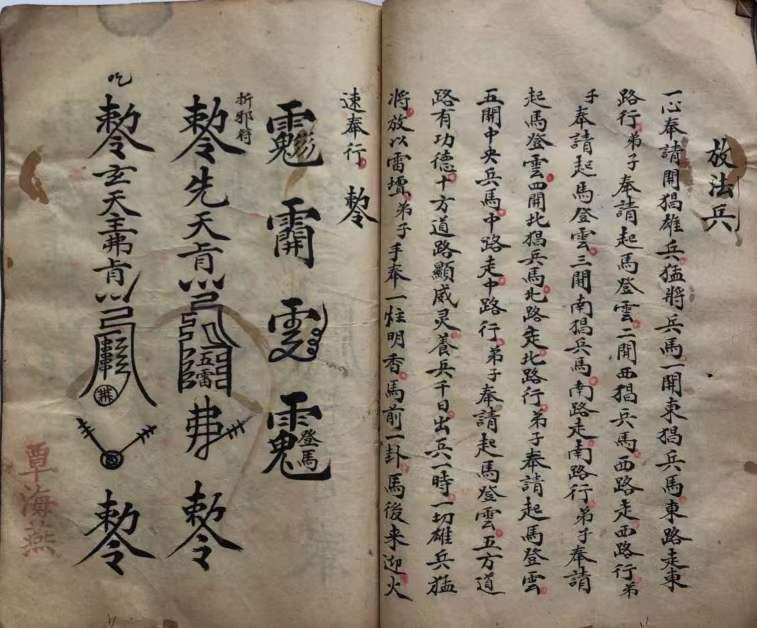 放法兵
一心奉請開猖雄兵猛將兵馬一開東猖兵馬東路走東
路行弟子奉請起馬登雲二開西猖兵馬西路走西路行弟
子奉請起馬登雲三開南猖兵馬南路走南路行弟子奉請
起馬登雲四開北猖兵馬北路走北路行弟子奉請起馬登雲
五開中央兵馬中路走中路行弟子奉請起馬登雲五方道
路有功德十方道路顯威灵養兵千日出兵一時一切雄兵猛
將放以雷壇弟子手奉一炷明香馬前一卦馬後来迎火
速奉行 勅令
登馬
折邪符
勅令先天肖
五雷
弗
勅令
吃
勅令玄天主弗肖
勅令
覃海燕